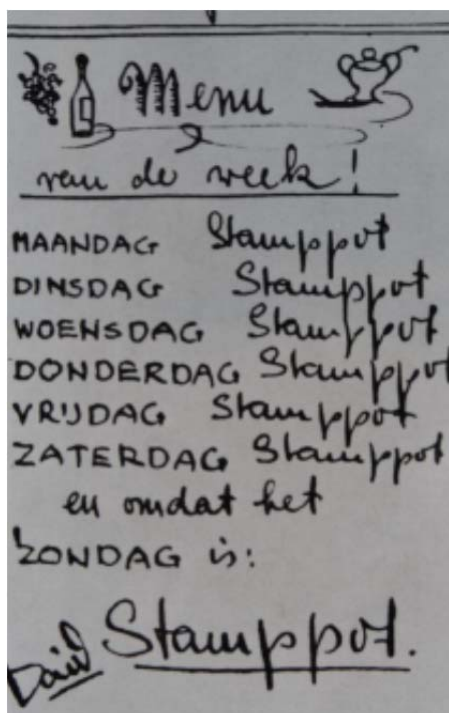 Menu
van de week!
MAANDAG Stamppot
DINSDAG Stamppot
WOENSDAG Stamppot
DONDERDAG Stamppot
VRIJDAG Stamppot
ZATERDAG Stamppot
en omdat het
ZONDAG is:
Stamppot.